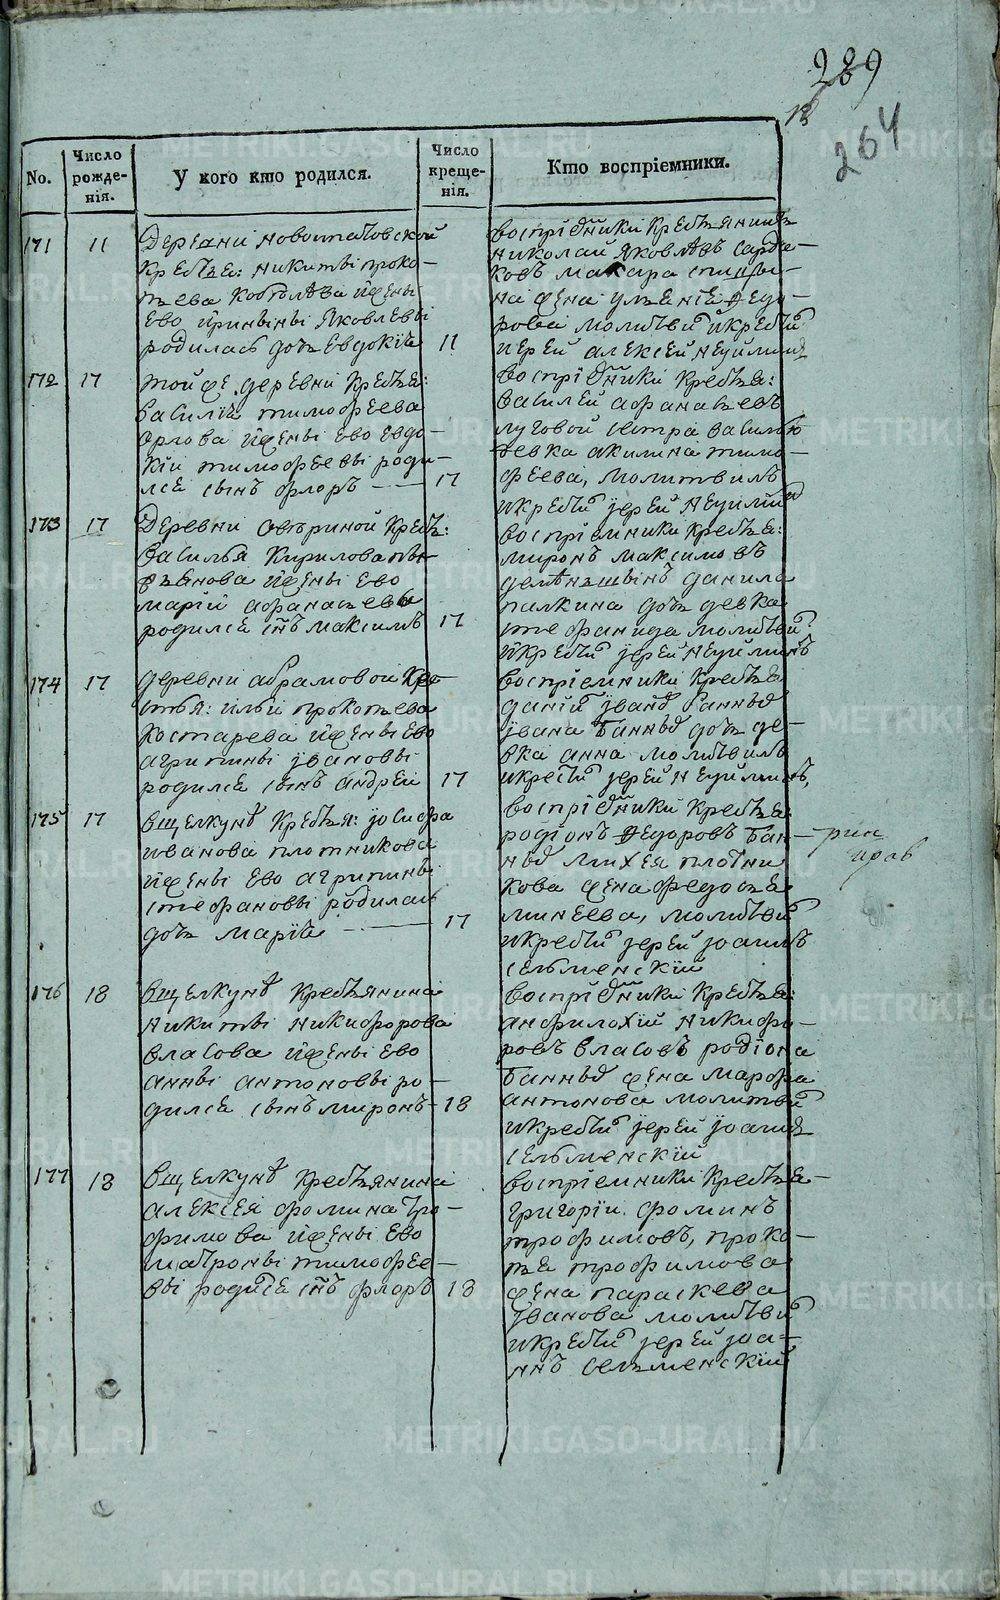 289
264
No.
Число рожде-нія.
У кого кто родился.
Число креще-нія.
Кто воспріемники.
171 11
Деревни новоипатовской
крестья: никиты проко-
пьева кобелева и жены
ево ирины яковлевы
родилась дочь евдокия 11
воспріемники крестьянинъ
николай яковлевъ
макара
на жена улья Федо-
рова молитви и крести
иерей алексей неуймин
172 17
той же деревни крестья:
василия тимофеева
орлова и жены ево евдо-
кии тимофеевы роди-
лся сынъ флоръ 17
воспріемники крестья:
василей афанасьевъ
луговой сестра васильева
девка акилина тимо-
феева, молитвилъ
и крести іерей неуймин
173 17
Деревни озериной кресть:
василья кирилова
и жены ево
марии афанасьевы
родился снъ максимъ 17
воспріемники крестья:
миронъ максимовъ
данила
палкина дочь девка
стефанида молитви
и крести іерей неуйминъ
174 17
деревни абрамовой кре-
стья: ильи прокопьева
костарева и жены ево
агрипины івановы
родился сынъ андрей 17
воспріемники крестья
іванъ банныхъ
івана банныхъ дочь де-
вка анна молитвилъ
и крести іерей неуйминъ,
175 17
вщелкунѣ крестья: іосифа
иванова плотникова
и жены ево агрипины
стефановы родилась
дочь мария 17
воспріемники крестья:
родіонъ Федоровъ бан-
ныхъ михея плотни
кова жена федосья
минеева, молитви
и крести іерей іоаннъ
сельменский
176 18
вщелкунѣ крестьянина
никиты никифорова
власова и жены ево
анны антоновы ро-
дился сынъ миронъ 18
воспріемники крестья:
анфилохій никифо-
ровъ власовъ родіона
банныхъ жена марфа
антонова молитви
и крести іерей іоаннъ
сельменский
177 18
вщелкунѣ крестьянина
алексея фомина тро-
фимова и жены ево
матроны тимофее-
вы родился снъ флоръ 18
воспріемники крестья-
григорій фоминъ
трофимовъ, проко-
пья трофимова
жена параскева
іванова молитви
и крести іерей іоа-
ннъ сельменский
METRIKI.GASO-URAL.RU